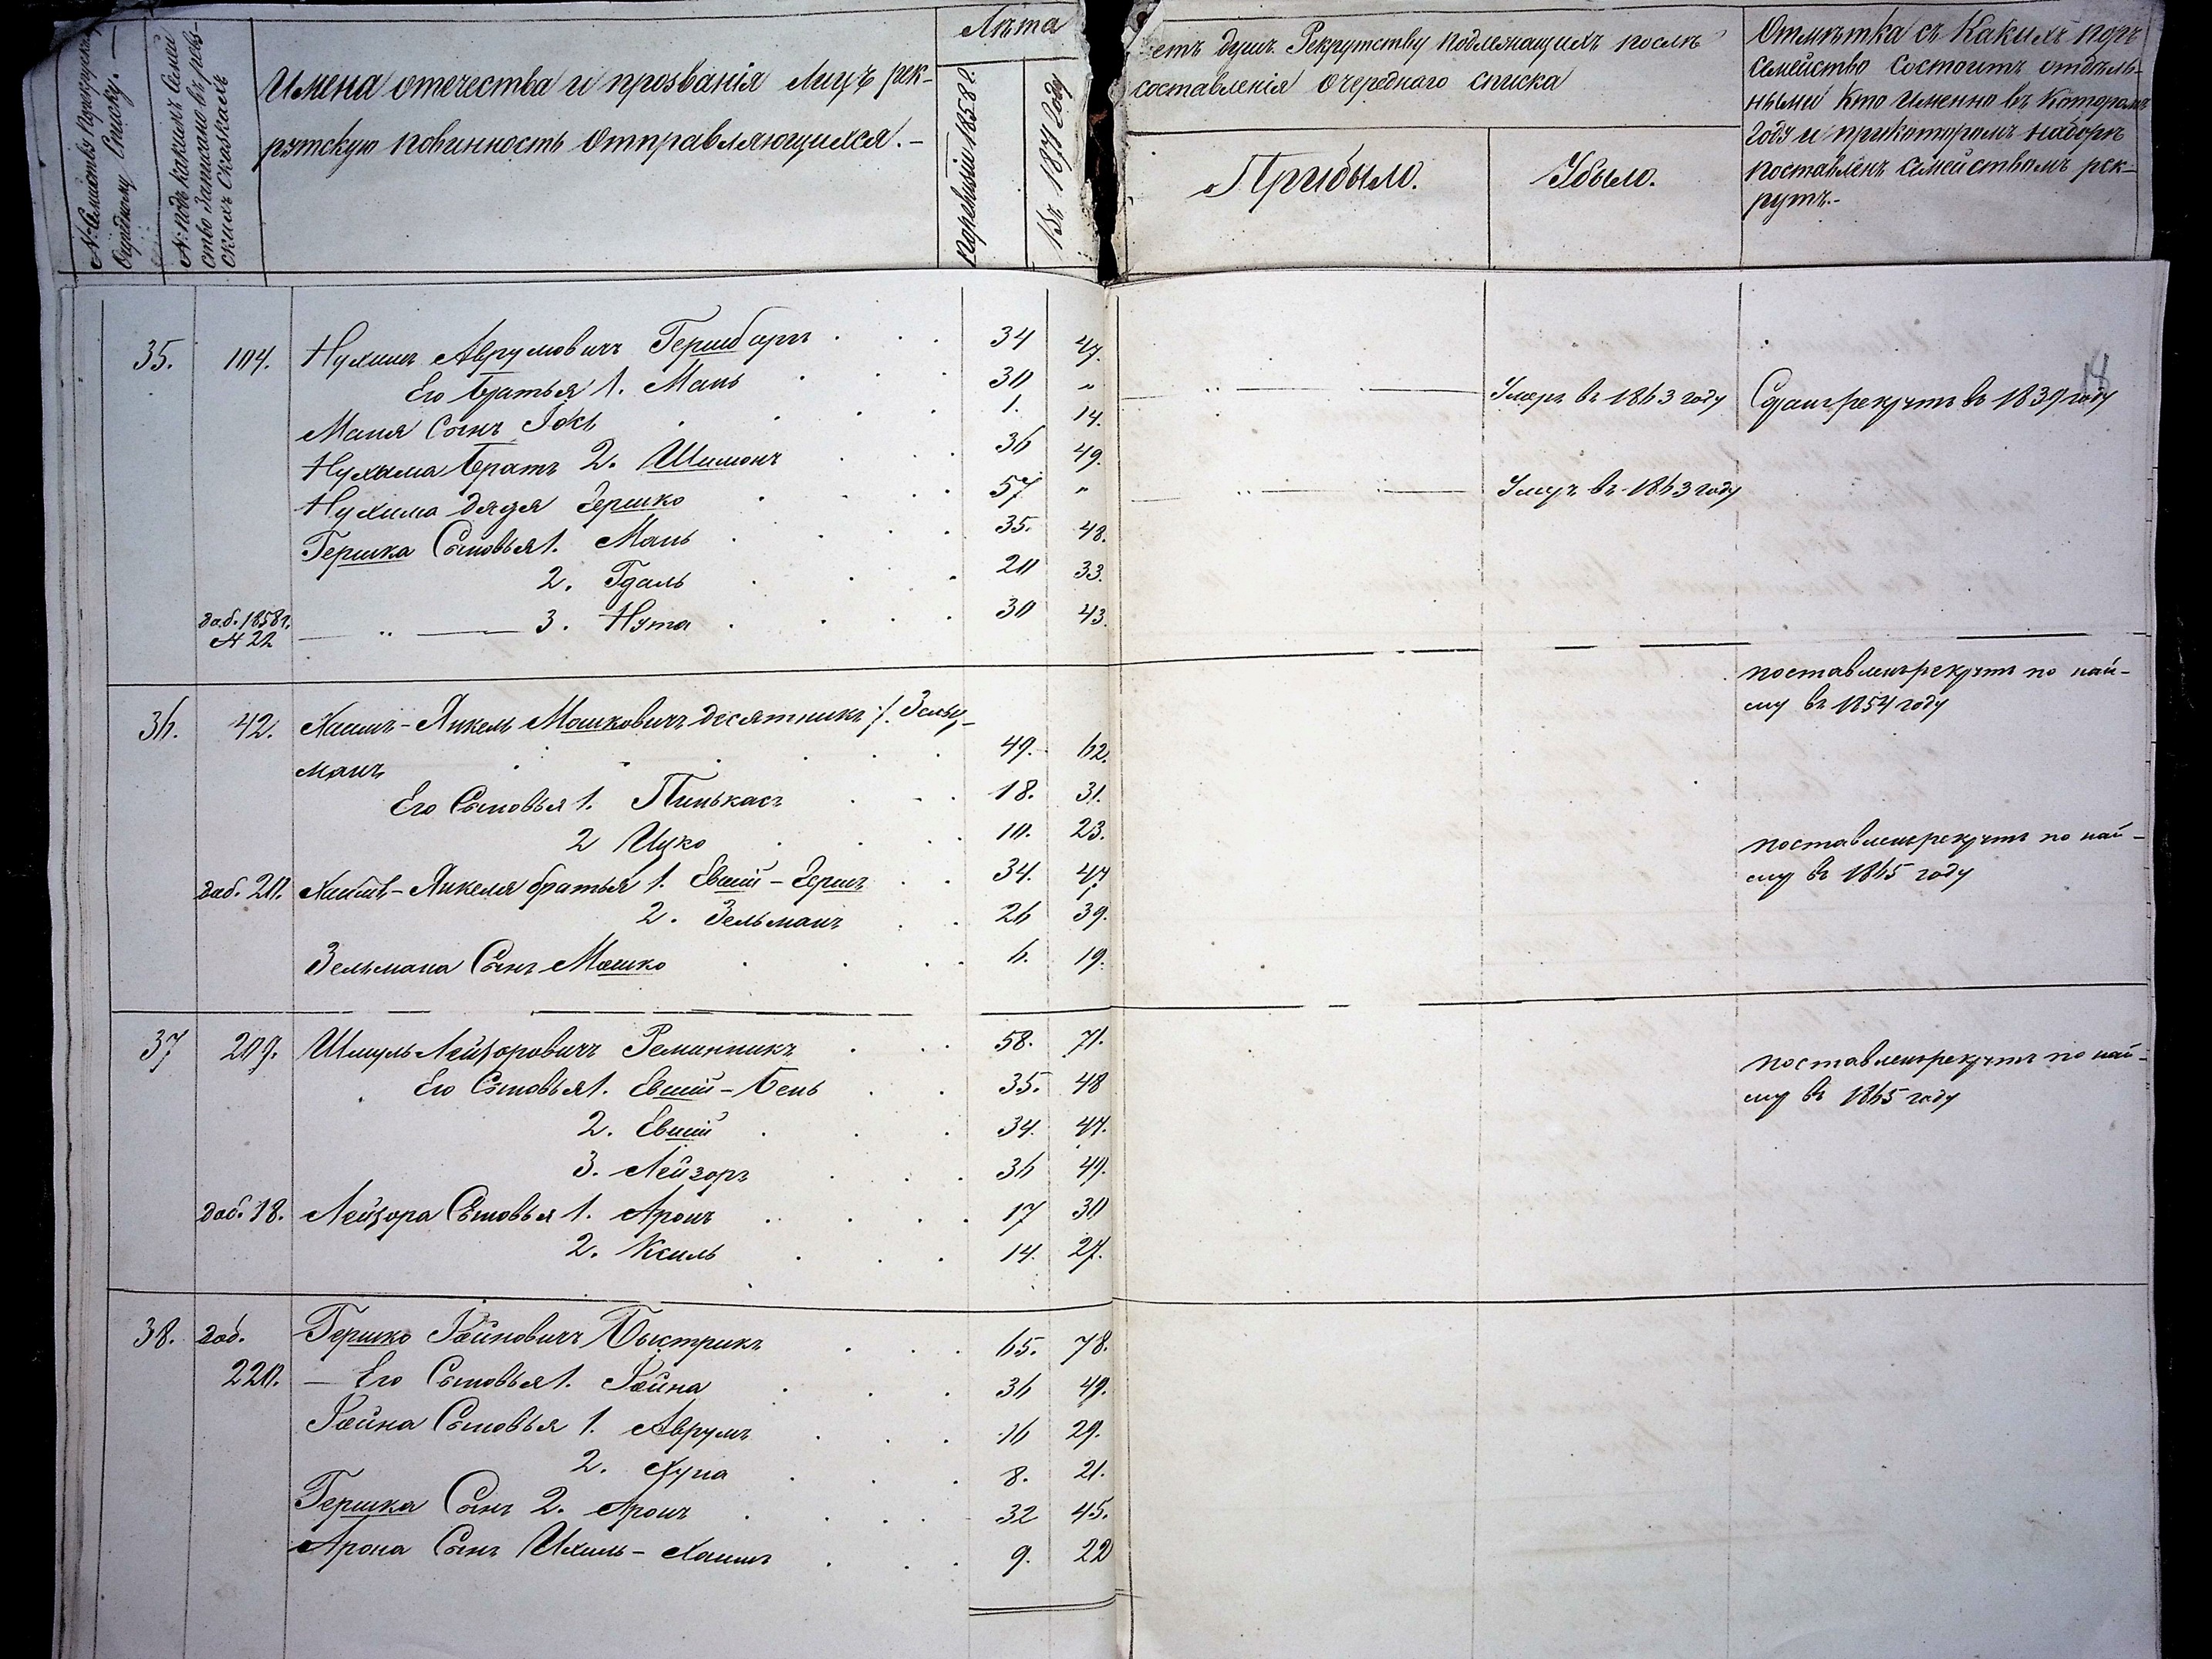 № Семейству по рекрутскому Очередному Списку. —
№ подъ какимъ Семейство записано въ ревизскихъ Сказкахъ
Имена отечества и прозванія Лицъ рек-
рутскую повинность отправляющихся. —
Лѣта
По ревизіи 1858 г.
Въ 1871 Году
етъ душъ Рекрутству подлежащихъ послѣ
составленія очереднаго списка
Прибыло.
Убыло.
Отмѣтка съ Какихъ поръ
семейство состоитъ отдѣль-
нымъ Кто именно въ Которомъ
Году и при которомъ наборѣ
поставленъ семействомъ рек-
рутъ. -
18
35. 104. Нухимъ Аврумовичъ Гершбарг . . . 34 47.
Его братья 1. Мань . . . 30 " Умеръ въ 1863 году Сданъ рекрутъ въ 1839 году
Маня Сынъ Іокь . . . 1. 14.
Нухыма братъ 2. Шимонъ . . . 36 49.
Нухима дядя Гершко . . . 57 " Умеръ въ 1863 году
Гершка Сыновья 1. Мань . . . 35. 48.
2. Гдаль . . . 20 33.
доб. 1858 г. № 22 — " — 3. Нута . . . 30 43.
36. 42. Хаимъ-Янкель Машковичъ десятникъ /. Зельц-
манъ . . . 49. 62.
поставленъ рекрутъ по най-
му въ 1854 году
Его Сыновья 1. Пинькасъ . . . 18. 31.
2 Ицко . . . 10. 23.
поставленъ рекрутъ по най-
му въ 1865 году
доб. 20. Хаимъ-Янкеля братья 1. Евшій-Герш . . 34. 47.
2. Зельманъ . . 26 39.
Зельмана Сынъ Мошко . . . 6. 19.
37 209. Шмуль Лейзоровичъ Ременникъ . . . 58. 71.
поставленъ рекрутъ по най-
му въ 1865 году
Его Сыновья 1. Евшій-Бень . . 35. 48
2. Евшій . . . 34. 47.
3. Лейзоръ . . . 36 49.
доб. 18. Лейзора Сыновья 1. Аронъ . . . 17 30
2. Ксиль . . . 14. 27.
38. доб. Гершко Іойновичъ Быстрикъ . . . 65. 78.
220. — Его Сыновья 1. Іойна . . . 36 49.
Іойна Сыновья 1. Аврумъ . . . 16 29.
2. Хуна . . . 8. 21.
Гершка Сынъ 2. Аронъ . . . 32 45.
Арона Сынъ Ихиль-Хаимъ . . . 9. 22